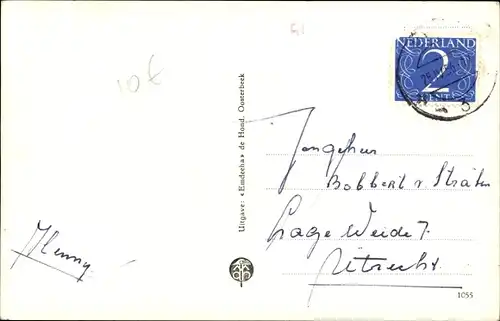 10€
51
NEDERLAND
2
CENT
Uitgave: «Emdeeha» de Hond, Oosterbeek
Jongeheer
Bobbert v. Straten
Lage Weide 7.
Utrecht.
Henny
1055